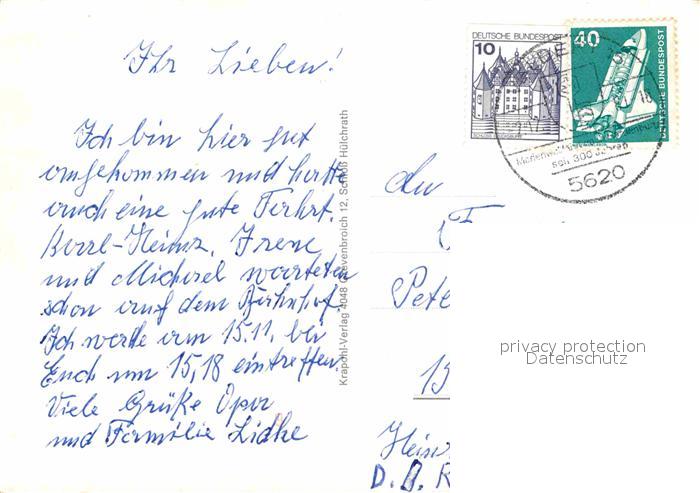 Ihr Lieben!
Ich bin hier gut
angekommen und hatte
auch eine gute Fahrt.
Karl-Heinz, Irene
und Michael warteten
schon auf dem Bahnhof.
Ich werde am 15.11. bei
Euch um 15,18 eintreffen
Viele Grüße Opa
und Familie Lidke
Krapohl-Verlag 4048 Grevenbroich 12, Schloß Hülchrath
DEUTSCHE BUNDESPOST
10
40
DEUTSCHE BUNDESPOST
seit 300 Jahren
5620
An
F
Pete
15
Hein
D.
privacy protection
Datenschutz